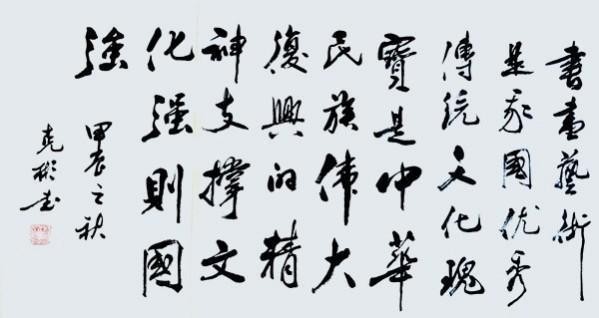 書畫藝術
是我國优秀
傳統文化瑰
寶是中華
民族偉大
復興的精
神支撐文
化强則國
强
甲辰之秋
克彬书